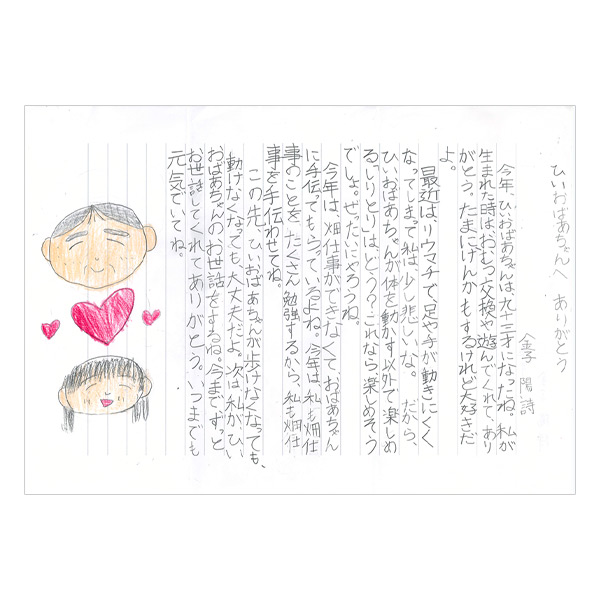 ひいおばあちゃんへ ありがとう
金子 陽詩
今年、ひいおばあちゃんは九十三才になったね。私が
生まれた時は、おむつ交換や遊んでくれて、あり
がとう。たまにけんかもするけれど大好きだ
よ。
最近は、リウマチで足や手が動きにくく
なってしまって私は少し悲しいな。だから、
ひいおばあちゃんが体を動かす以外で楽しめ
るしりとりは、どう？これなら、楽めそう
でしょ。ぜったいにやろうね。
今年は、畑仕事ができなくて、おばあちゃん
に手伝ってもらっているよね。今年は、私も畑仕
事のことをたくさん勉強するから、私も畑仕
事を手伝わせてね。
この先、ひいおばあちゃんが歩けなくなっても、
動けなくなっても大丈夫だよ。次は、私が、ひい
おばあちゃんのお世話をするね。今までずっと
お世話してくれてありがとう。いつまでも
元気でいてね。